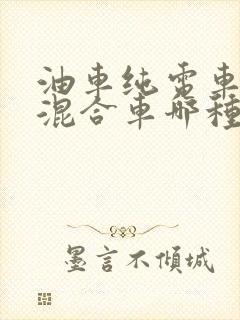 油車纯電車
混合車哪種
墨言不傾城